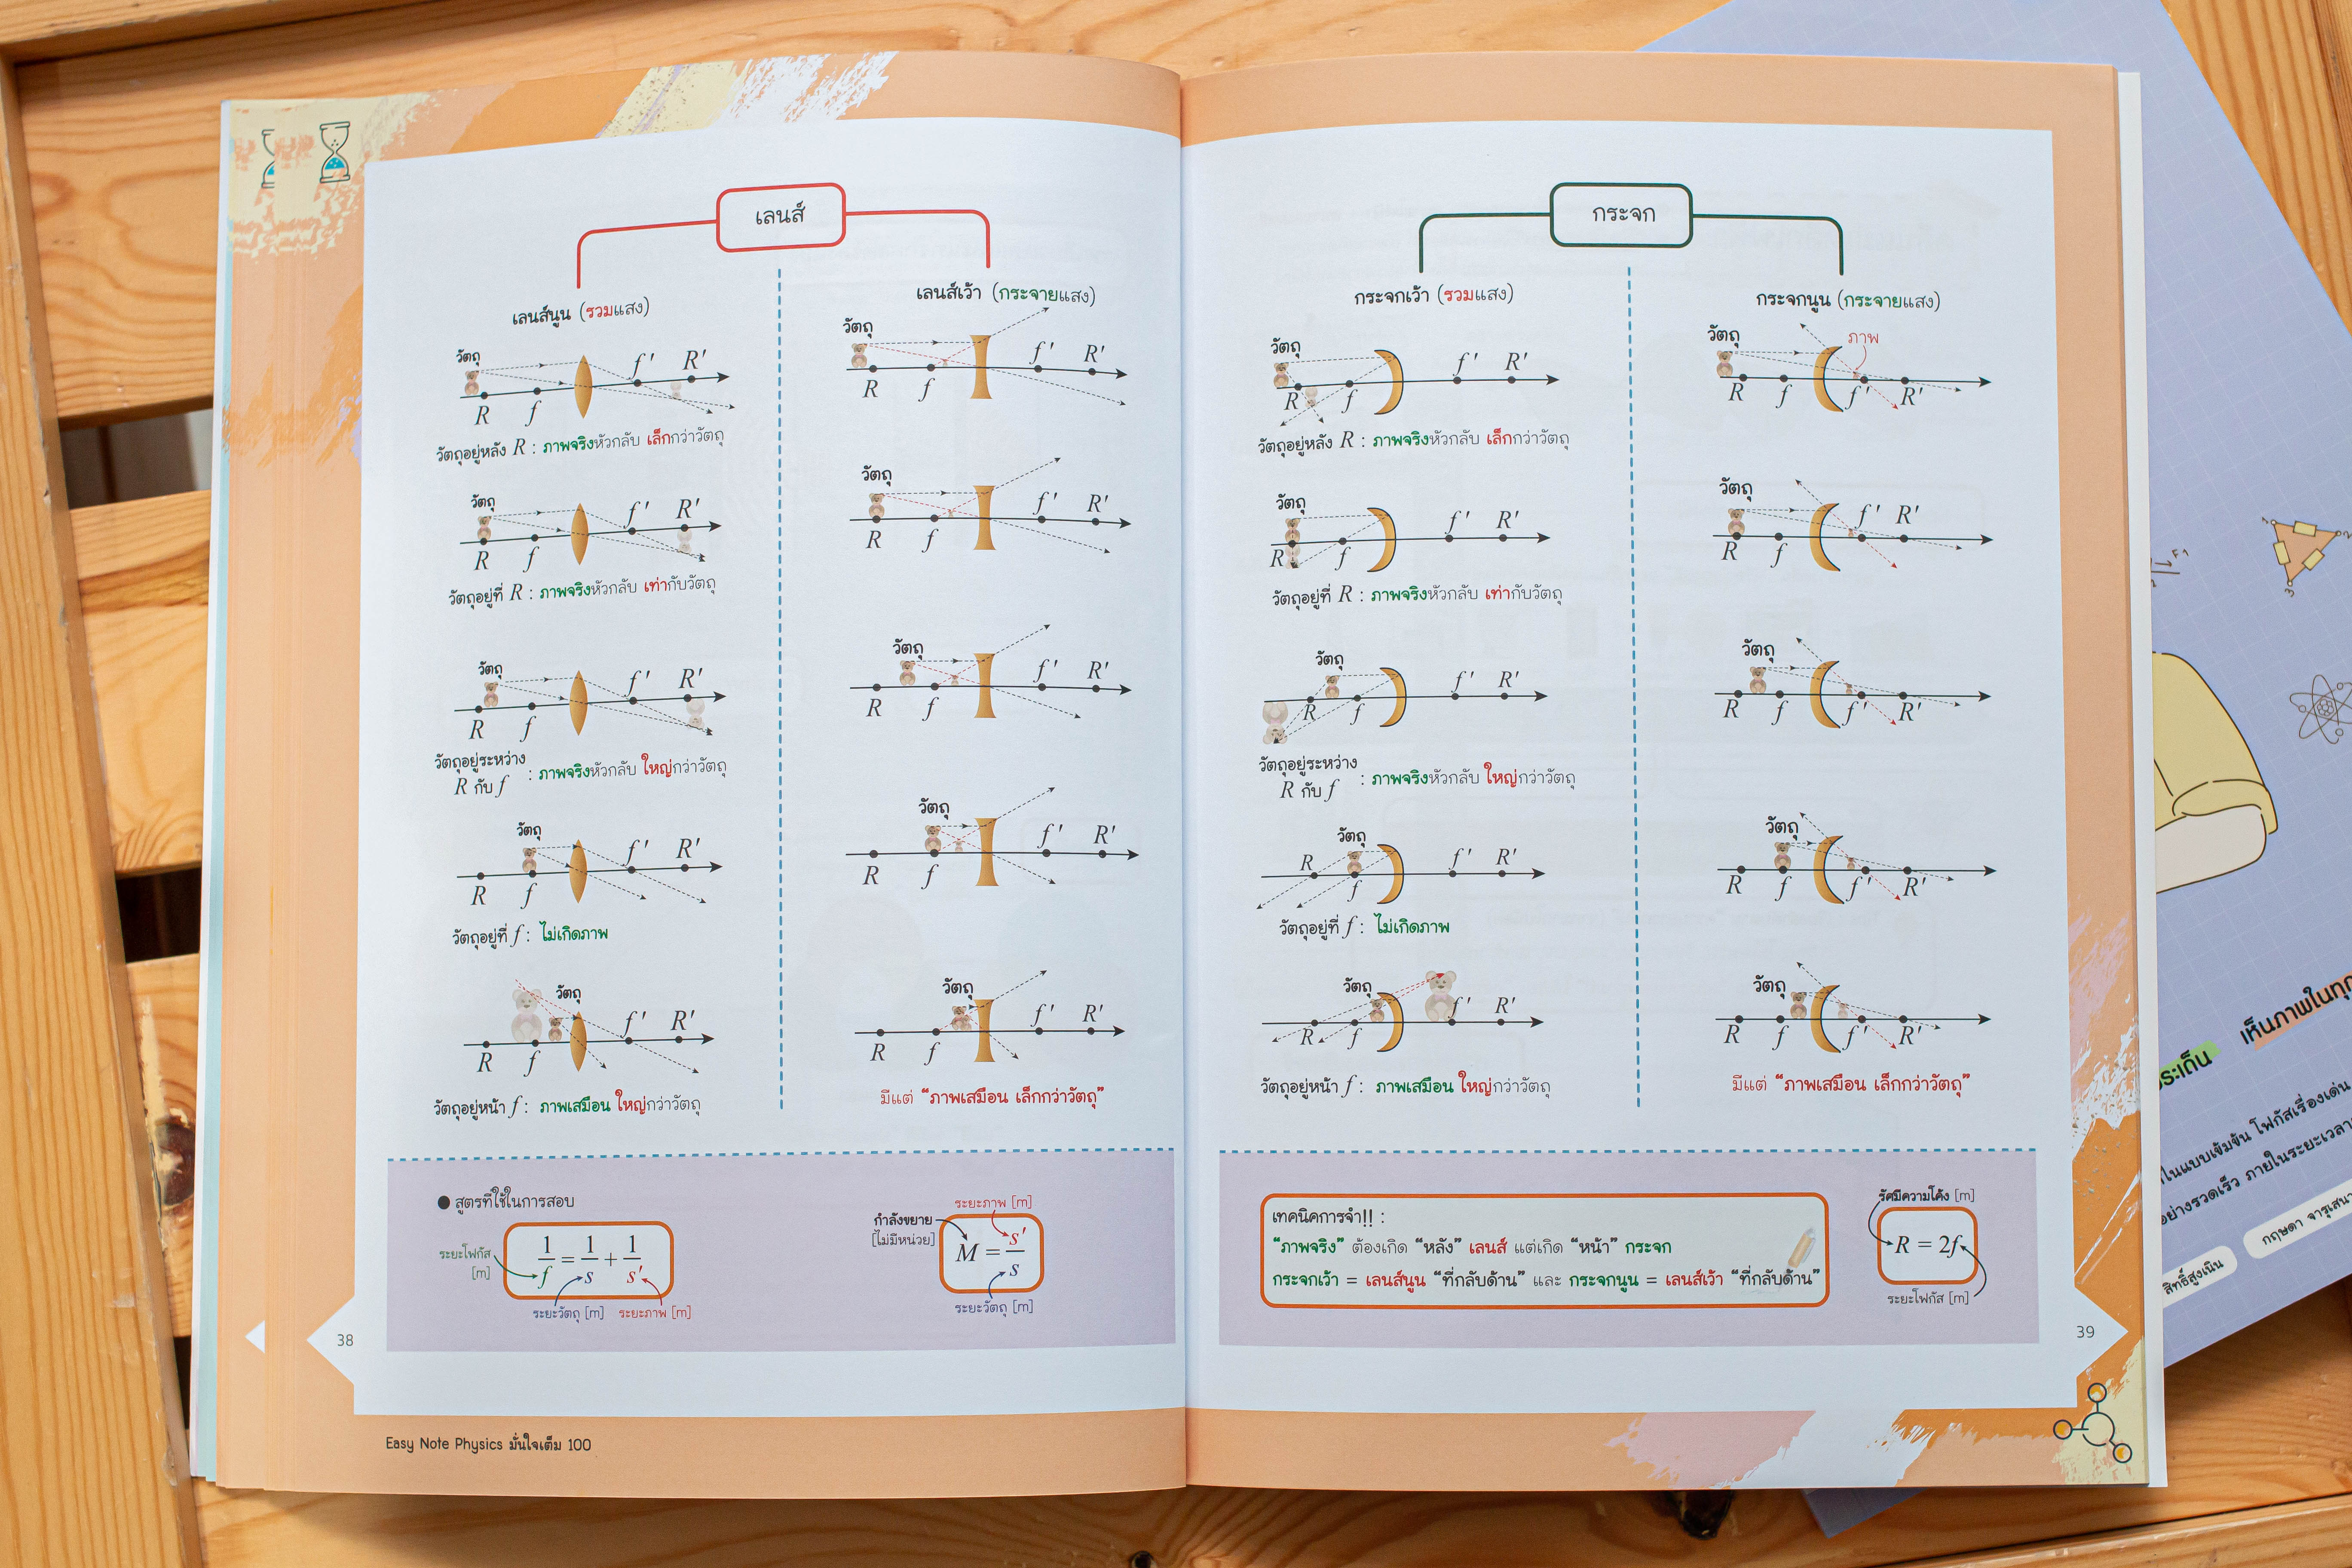 เลนส์
เลนส์นูน (รวมแสง)
วัตถุ
f' R'
R f
วัตถุอยู่หลัง R : ภาพจริงหัวกลับ เล็กกว่าวัตถุ
วัตถุ
f' R'
R f
วัตถุอยู่ที่ R : ภาพจริงหัวกลับ เท่ากับวัตถุ
วัตถุ
f' R'
R f
วัตถุอยู่ระหว่าง
R กับ f : ภาพจริงหัวกลับ ใหญ่กว่าวัตถุ
วัตถุ
f' R'
R f
วัตถุอยู่ที่ f : ไม่เกิดภาพ
วัตถุ
f' R'
R f
วัตถุอยู่หน้า f : ภาพเสมือน ใหญ่กว่าวัตถุ
เลนส์เว้า (กระจายแสง)
วัตถุ
f' R'
R f
วัตถุ
f' R'
R f
วัตถุ
f' R'
R f
วัตถุ
f' R'
R f
วัตถุ
f' R'
R f
มีแต่ “ภาพเสมือน เล็กกว่าวัตถุ”
● สูตรที่ใช้ในการสอบ
ระยะโฟกัส
[m]
1/f = 1/s + 1/s'
ระยะวัตถุ [m] ระยะภาพ [m]
ระยะภาพ [m]
กำลังขยาย
[ไม่มีหน่วย]
M = s'/s
ระยะวัตถุ [m]
38
Easy Note Physics มั่นใจเต็ม 100
กระจก
กระจกเว้า (รวมแสง)
วัตถุ
f' R'
R f
วัตถุอยู่หลัง R : ภาพจริงหัวกลับ เล็กกว่าวัตถุ
วัตถุ
f' R'
R f
วัตถุอยู่ที่ R : ภาพจริงหัวกลับ เท่ากับวัตถุ
วัตถุ
f' R'
R f
วัตถุอยู่ระหว่าง
R กับ f : ภาพจริงหัวกลับ ใหญ่กว่าวัตถุ
วัตถุ
R f' R'
f
วัตถุอยู่ที่ f : ไม่เกิดภาพ
วัตถุ
f' R'
R f
วัตถุอยู่หน้า f : ภาพเสมือน ใหญ่กว่าวัตถุ
กระจกนูน (กระจายแสง)
วัตถุ ภาพ
R f f' R'
วัตถุ
f' R'
R f
วัตถุ
R f f' R'
วัตถุ
R f f' R'
วัตถุ
R f f' R'
มีแต่ “ภาพเสมือน เล็กกว่าวัตถุ”
เทคนิคการจำ!! :
“ภาพจริง” ต้องเกิด “หลัง” เลนส์ แต่เกิด “หน้า” กระจก
กระจกเว้า = เลนส์นูน “ที่กลับด้าน” และ กระจกนูน = เลนส์เว้า “ที่กลับด้าน”
รัศมีความโค้ง [m]
R = 2f
ระยะโฟกัส [m]
39
เห็นภาพในทุก
ระเด็น
ในแบบเข้มข้น โฟกัสเรื่องเด่น
อย่างรวดเร็ว ภายในระยะเวลา
สิทธิ์สูงเนิน
กฤษดา จารุเสนา